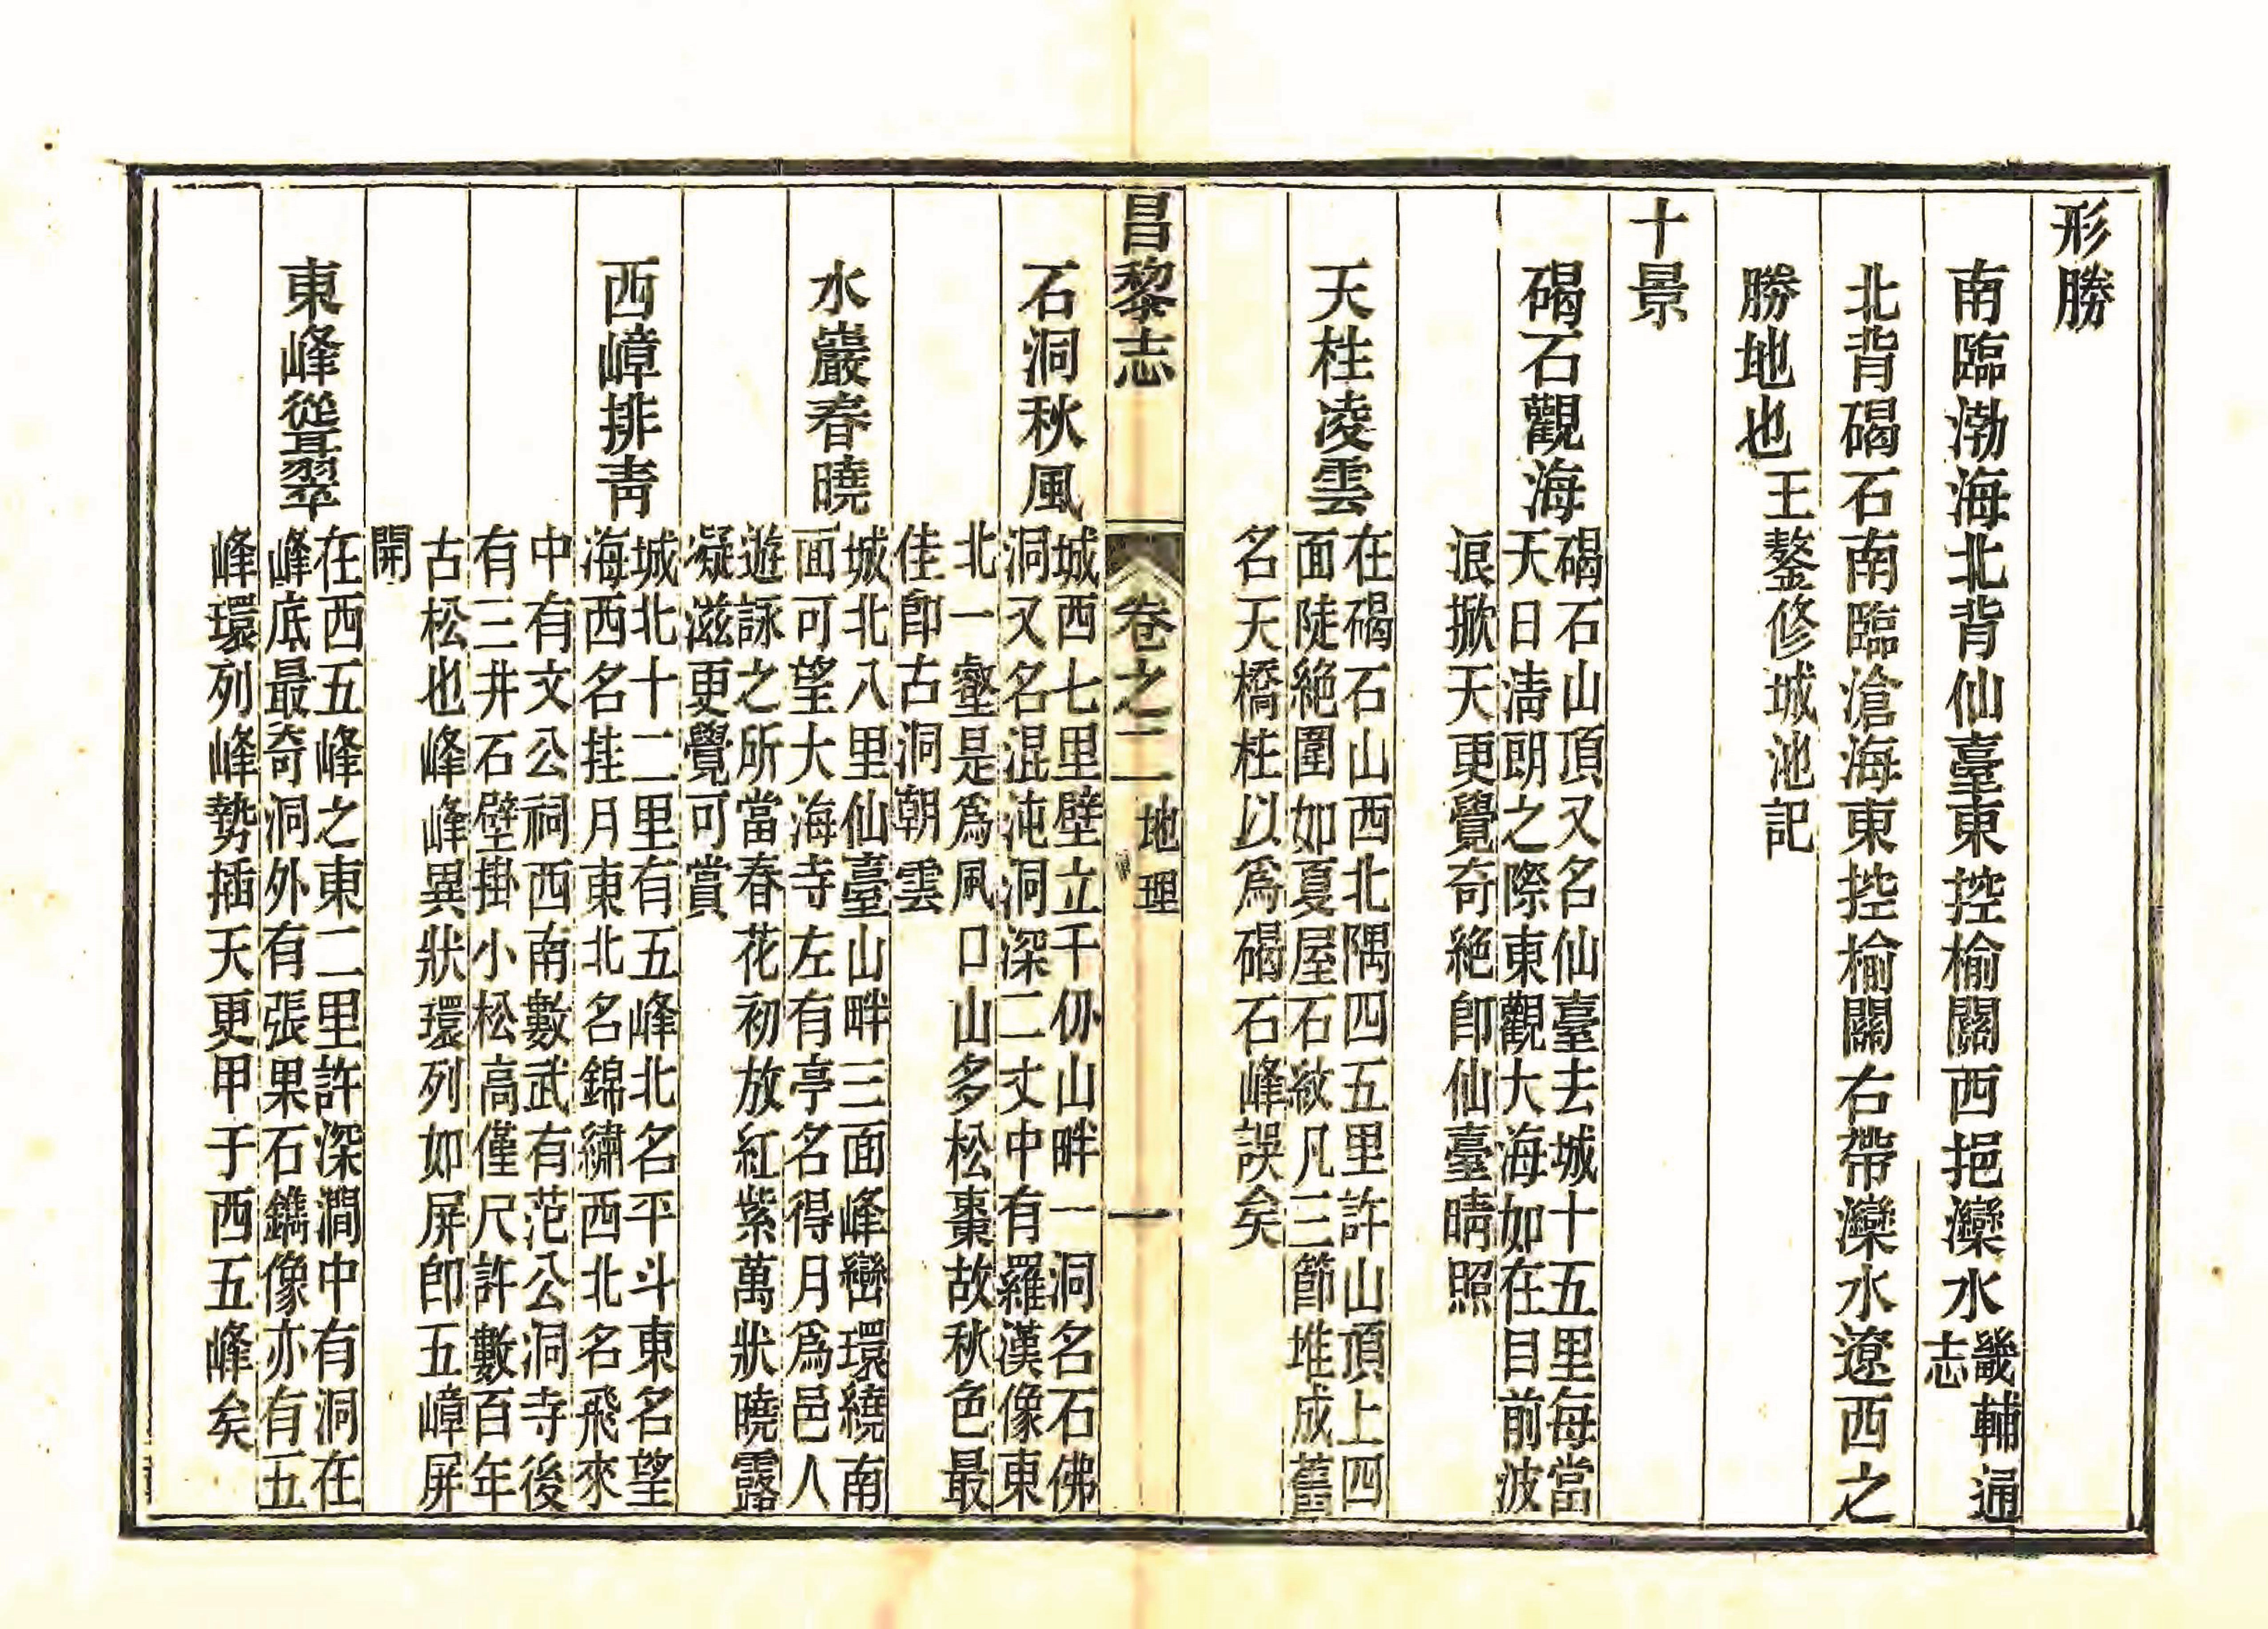 形勝
南臨渤海北背仙臺東控榆關西挹灤水畿輔通
志
北背碣石南臨滄海東控榆關右帶灤水遼西之
勝地也王鏊修城池記
十景
碣石觀海碣石山頂又名仙臺去城十五里每當
天日淸朗之際東觀大海如在目前波
浪掀天更覺奇絶卽仙臺晴照
天柱凌雲在碣石山西北隅四五里許山頂上四
面陡絶圍如夏屋石欹凡三節堆成舊
名天橋柱以爲碣石峰誤矣
昌黎志 卷之二 地理 一
石洞秋風城西七里壁立千仞山畔一洞名石佛
洞又名混沌洞洞深二丈中有羅漢像東
北一壑是爲風口山多松棗故秋色最
佳卽古洞朝雲
水巖春曉城北八里仙臺山畔三面峰巒環繞南
面可望大海寺左有亭名得月爲邑人
遊詠之所當春花初放紅紫萬狀曉露
凝滋更覺可賞
西嶂排靑城北十二里有五峰北名平斗東名望
海西名挂月東北名錦繡西北名飛來
中有文公祠西南數武有范公洞寺後
有三井石壁掛小松高僅尺許數百年
古松也峰峰異狀環列如屏卽五嶂屏
開
東峰聳翠在西五峰之東二里許深澗中有洞在
峰底最奇洞外有張果石鐫像亦有五
峰環列峰勢插天更甲于西五峰矣